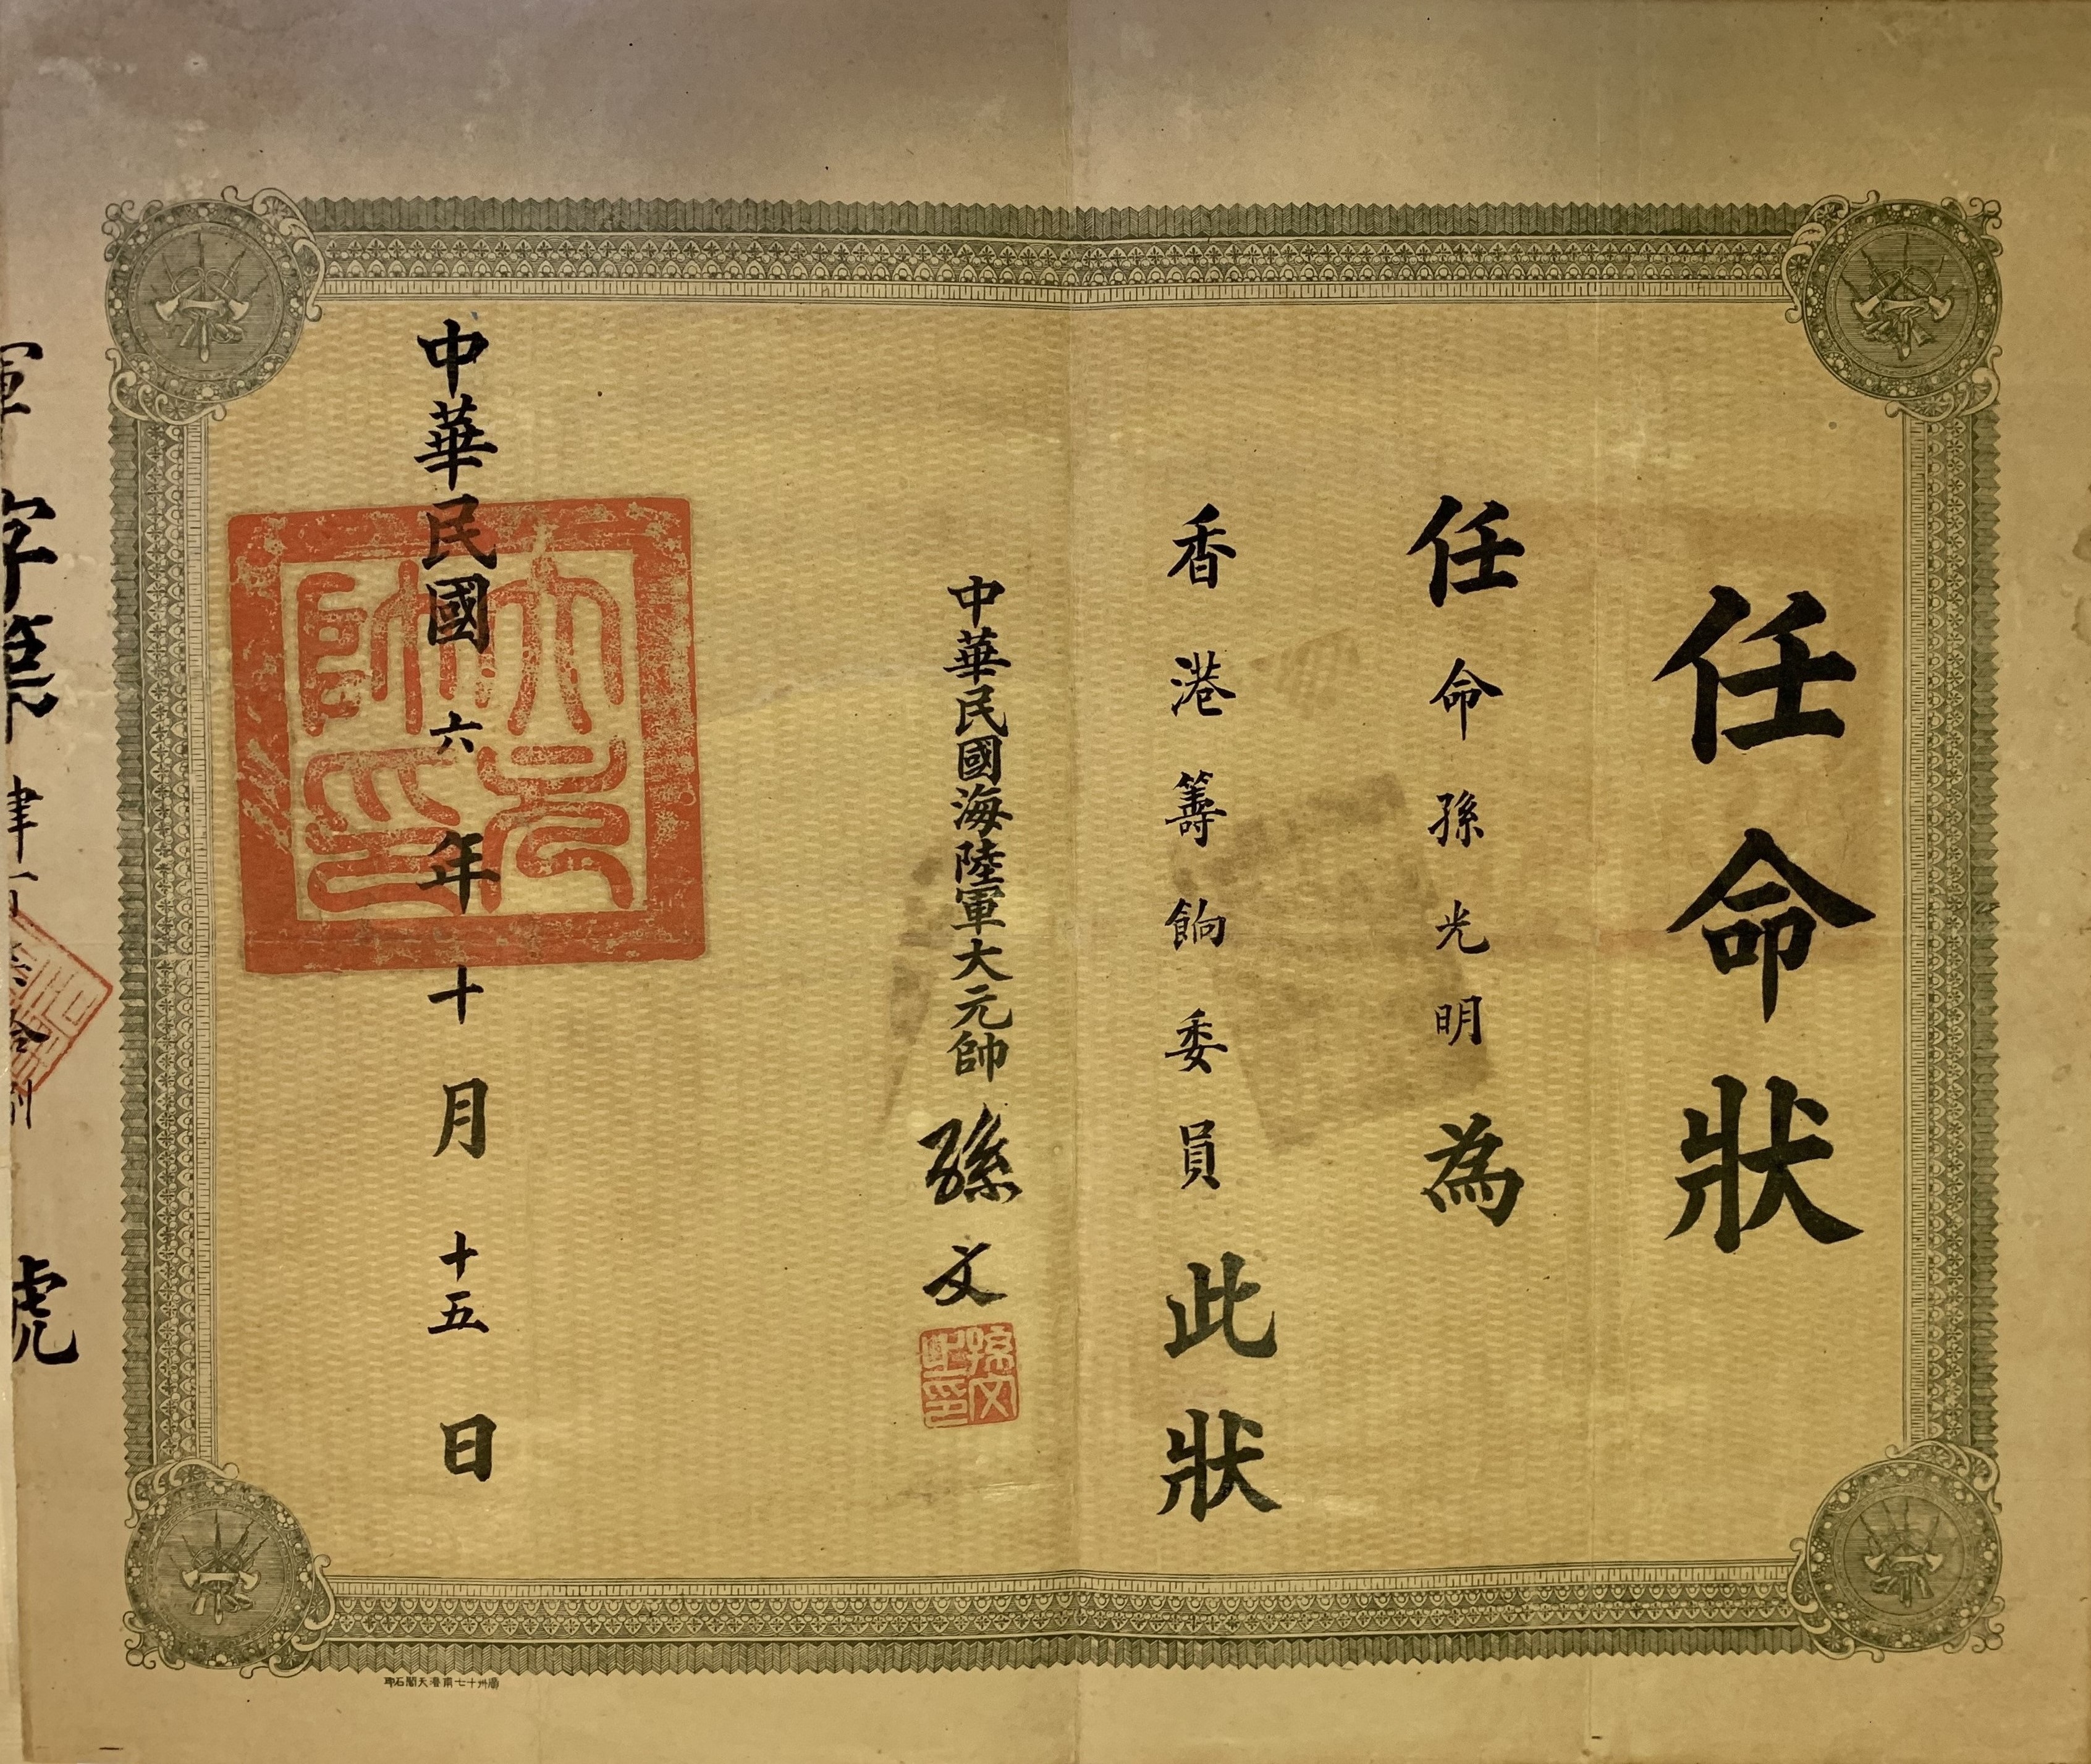 任命狀
任命孫光明為
香港籌餉委員此狀
中華民國海陸軍大元帥孫文
孫文之印
中華民國六年十月十五日
大元帥印
字第
號